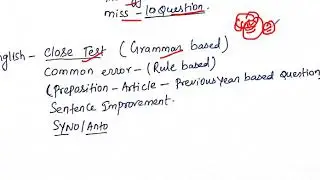 miss - 10 Question.
nglish - Close Test (Grammar based)
Common error - (Rule based)
(Preposition - Article - Previous year based Question)
Sentence Improvement.
SYNO/Anto